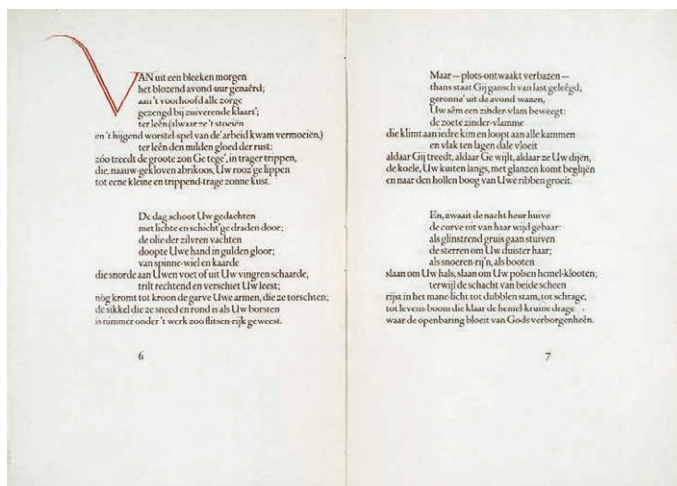 VAN uit een bleeken morgen
het blozend avond-uur genaêrd;
aan 't voorhoofd alle zorge
gezengd bij zuiverende klaart';
ter leên (alwaar ze 't stoeiën
en 't hijgend worstel-spel van de' arbeid kwam vermoeiën,)
ter leên den milden gloed der rust:
zóo treedt de groote zon Ge tege', in trager trippen,
die, naauw-gekloven abrikoos, Uw rooz'ge lippen
tot eene kleine en trippend-trage zonne kust.
De dag schoot Uw gedachten
met lichte en schicht'ge draden door;
de olie der zilvren vachten
doopte Uwe hand in gulden gloor;
van spinne-wiel en kaarde
die snorde aan Uwen voet of uit Uw vingren schaarde,
trilt rechtend en verschiet Uw leest;
nòg kromt tot kroon de garve Uwe armen, die ze torschten;
de sikkel die ze sneed en rond is als Uw borsten
is nimmer onder 't werk zoo flitsen-rijk geweest.
6
Maar — plots-ontwaakt verbazen —
thans staat Gij gansch van last geleêgd,
geronne' uit de avond-wazen,
Uw aêm een zinder-vlam beweegt:
de zoete zinder-vlamme
die klimt aan iedre kim en loopt aan alle kammen
en vlak ten lagen dale vloeit
aldaar Gij treedt, aldaar Ge wijlt, aldaar ze Uw dijën,
de koele, Uw kuiten langs, met glanzen komt beglijën
en naar den hollen boog van Uwe ribben groeit.
En, zwaait de nacht heur huive
de curve uit van haar wijd gebaar:
als glinstrend gruis gaan stuiven
de sterren om Uw duister haar;
als snoeren-rij'n, als booten
slaan om Uw hals, slaan om Uw polsen hemel-klooten;
terwijl de schacht van beide scheen
rijst in het mane-licht tot dubblen stam, tot schrage,
tot levens-boom die klaar de hemel-kruine drage
waar de openbaring bloeit van Gods verborgenheên.
7